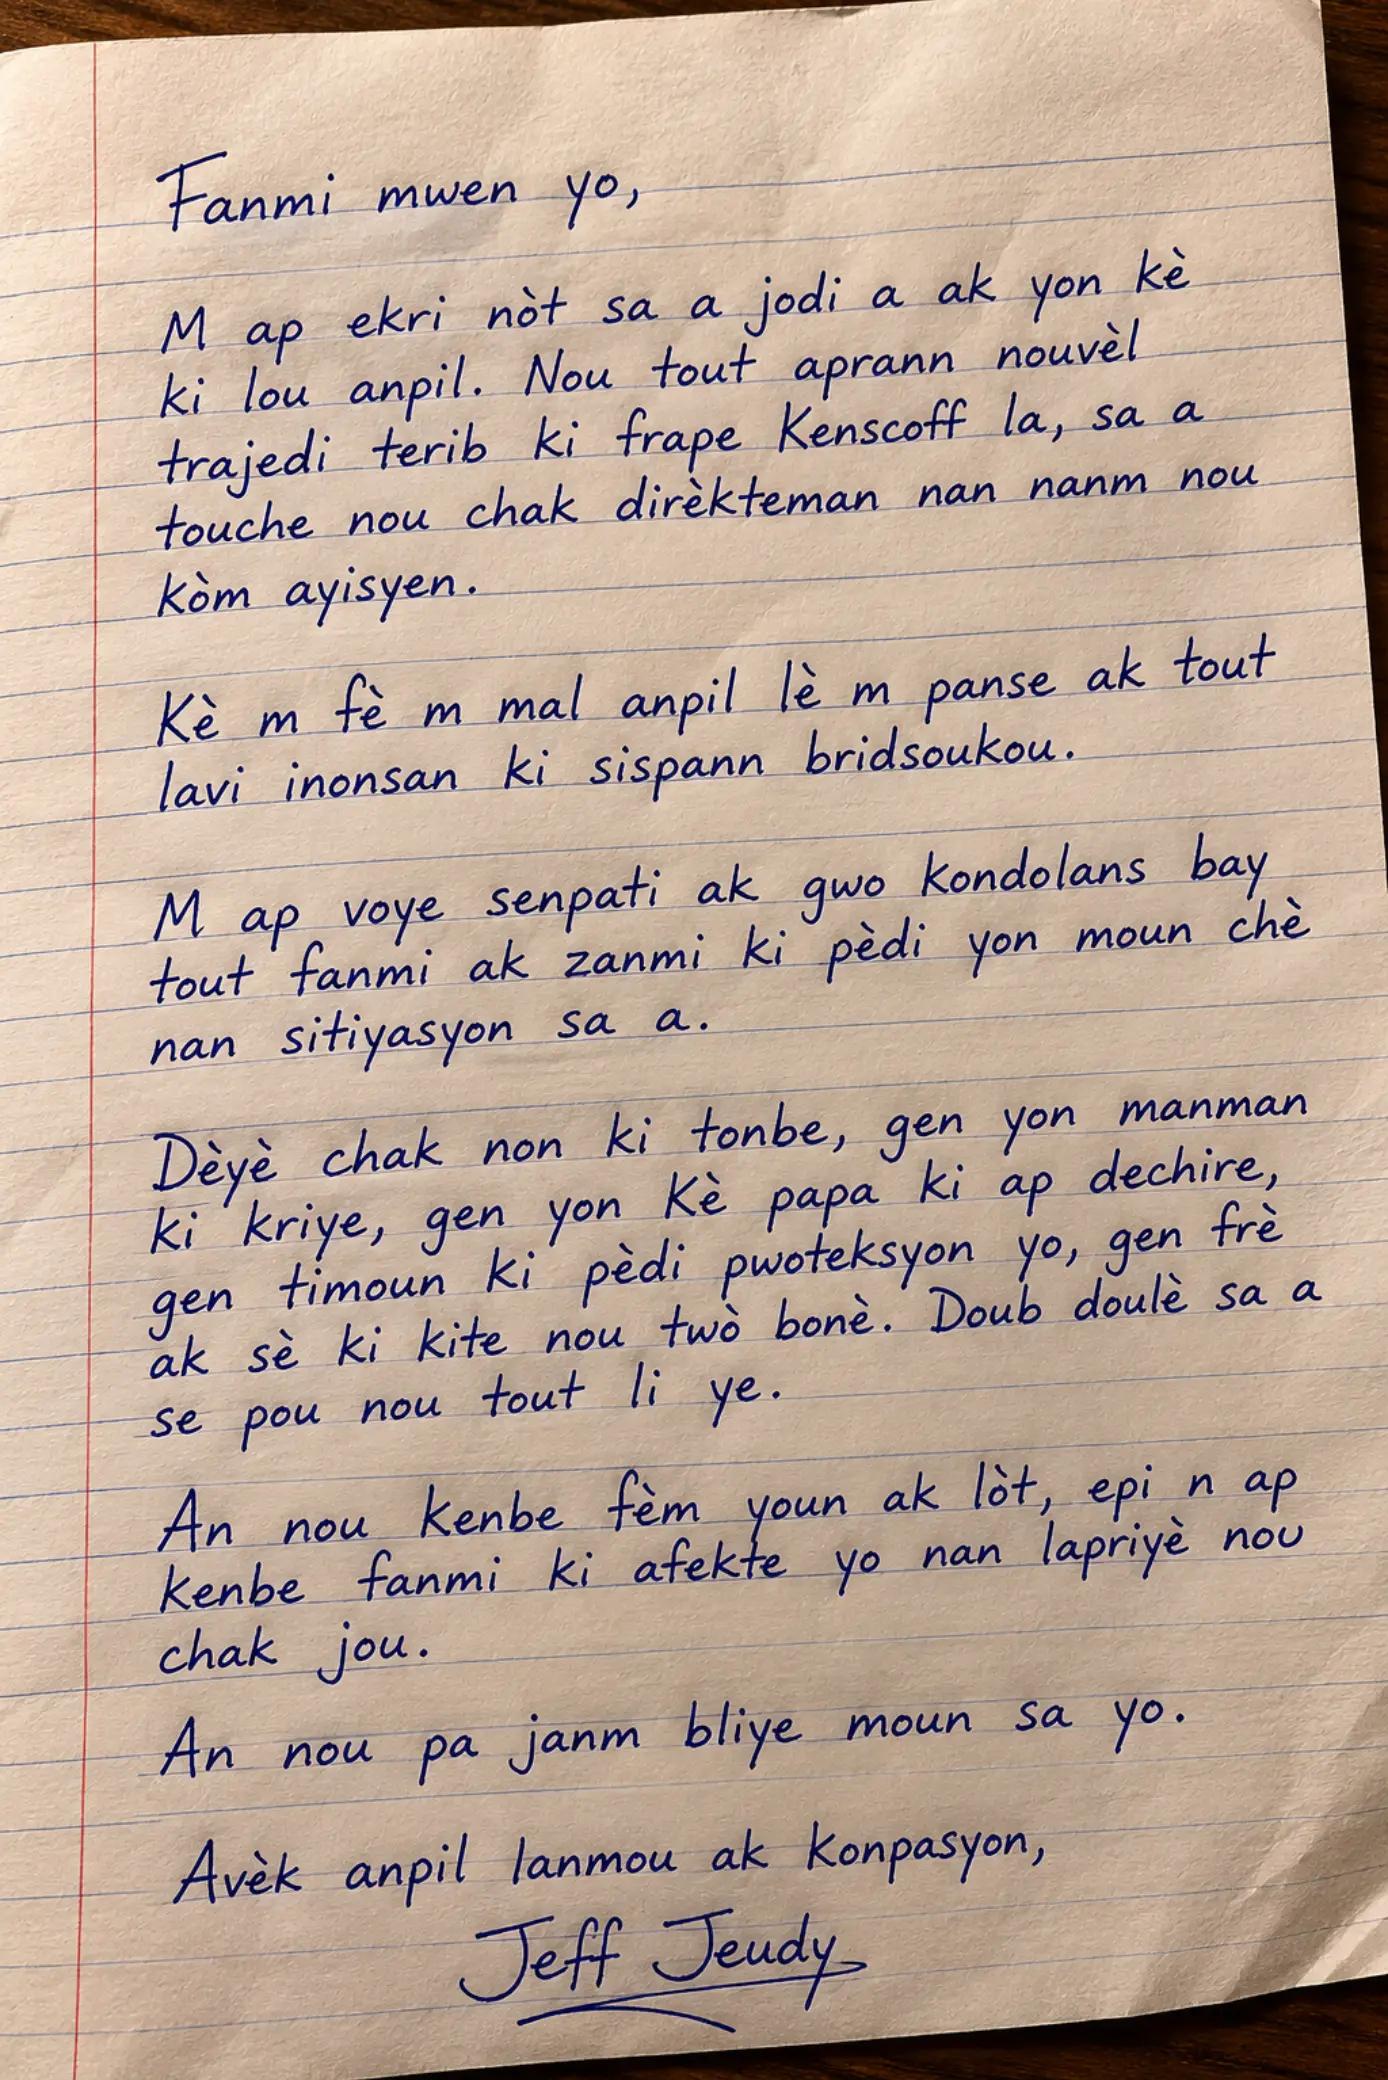 Fanmi mwen yo,
M ap ekri nòt sa a jodi a ak yon kè
ki lou anpil. Nou tout aprann nouvèl
trajedi terib ki frape Kenscoff la, sa a
touche nou chak dirèkteman nan nanm nou
kòm ayisyen.
Kè m fè m mal anpil lè m panse ak tout
lavi inonsan ki sispann bridsoukou.
M ap voye senpati ak gwo kondolans bay
tout fanmi ak zanmi ki pèdi yon moun chè
nan sitiyasyon sa a.
Dèyè chak non ki tonbe, gen yon manman
ki kriye, gen yon kè papa ki ap dechire,
gen timoun ki pèdi pwoteksyon yo, gen frè
ak sè ki kite nou twò bonè. Doub doulè sa a
se pou nou tout li ye.
An nou kenbe fèm youn ak lòt, epi n ap
kenbe fanmi ki afekte yo nan lapriyè nou
chak jou.
An nou pa janm bliye moun sa yo.
Avèk anpil lanmou ak konpasyon,
Jeff Jeudy